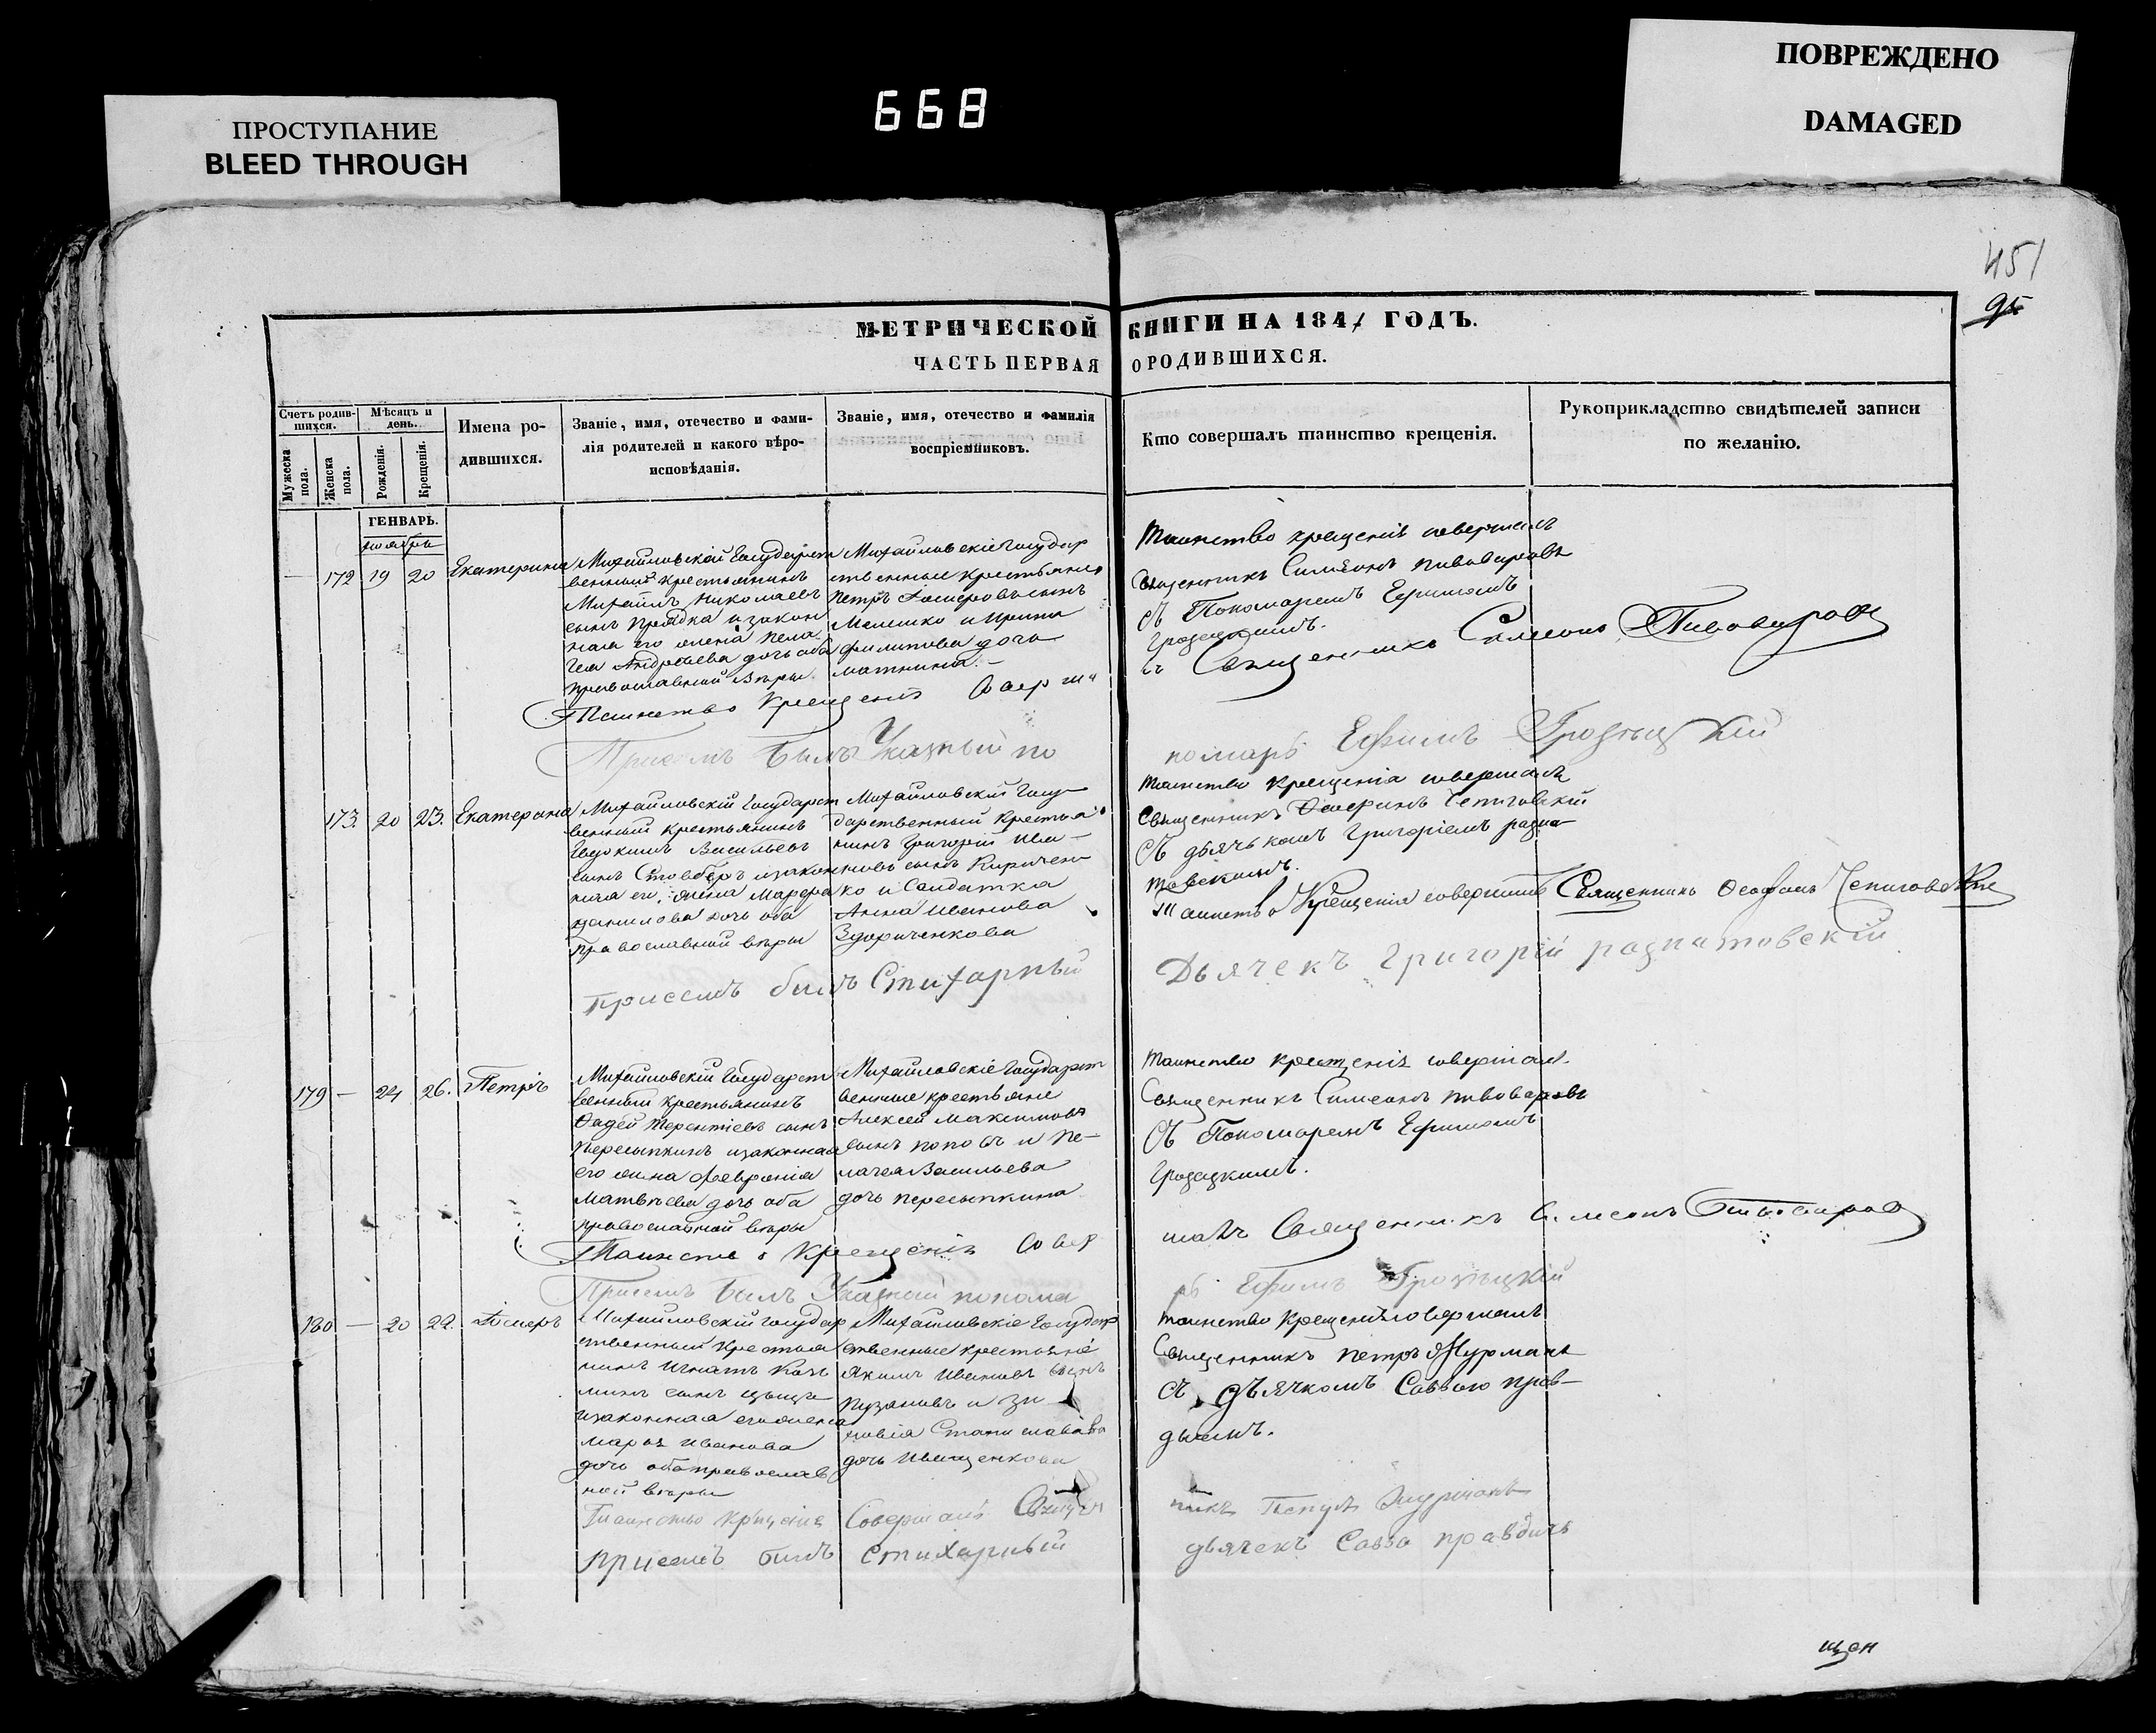 ПРОСТУПАНИЕ
BLEED THROUGH
668
ПОВРЕЖДЕНО
DAMAGED
451
95
МЕТРИЧЕСКОЙ КНИГИ НА 1841 ГОДЪ.
ЧАСТЬ ПЕРВАЯ О РОДИВШИХСЯ.
Счетъ родив-
шихся.
Мужеска
пола.
Женска
пола.
Мѣсяцъ и
день.
Рожденія.
Крещенія.
Имена ро-
дившихся.
Званіе, имя, отечество и фами-
лія родителей и какого вѣро-
исповѣданія.
Званіе, имя, отечество и фамилія
воспріемниковъ.
Кто совершалъ таинство крещенія.
Рукоприкладство свидѣтелей записи
по желанію.
ГЕНВАРЬ.
ноября
— 172 19 20 Екатерина
Михайловскій Государст
венный крестьянинъ
Михаилъ Николаевъ
сынъ изакон
ная его жена Пела
гея Андреева дочь оба
православной вѣры
Михайловскіе Государ
ственные крестьяне
Петръ сынъ
и Ирина
Филипова дочь
Таинство крещенія совершалъ
Священникъ Симеонъ Пивоваровъ
съ Пономаремъ Ефимомъ
Гродецкимъ.
Таинство Крещенія Соверша
лъ Священникъ Симеонъ Пивоваровъ
Присемъ былъ Указный по
номарь Ефимъ Гродецкій
173. 20 23. Екатерина
Михайловскій Государст
венный крестьянинъ
Евдокимъ Васильевъ
сынъ изакон
ная его жена Марфа
Данилова дочь оба
Православной вѣры
Михайловскій Госу-
дарственный крестья
нинъ Григорій Ива-
новъ сынъ Киричен
ко и Солдатка
Анна Иванова
Таинство крещенія совершалъ
Священникъ Чепиговскій
Съ дьячькомъ Григоріемъ разна-
товскимъ.
Таинство Крещенія совершилъ Священникъ Феофанъ Чепиговскій
присемъ былъ Стихарный
Дьячекъ Григорій разнатовскій
179 — 24 26. Петръ
Михайловскій Государст
венный крестьянинъ
Фадей Терентіевъ сынъ
Пересыпкинъ изаконная
его жена Февронія
Матвѣева дочь оба
православной вѣры
Михайловскіе Государст
венные крестьяне
Алексей Максимовъ
сынъ Поповъ и Пе-
лагея Васильева
дочь Пересыпкина
Таинство крещенія совершал.
Священникъ Симеонъ Пивоваровъ
Съ Пономаремъ Ефимомъ
Гродецкимъ.
Таинство Крещенія Совер
шалъ Священникъ Симеонъ Пивоваровъ
Присемъ былъ Указный понома
рь Ефимъ Гродецкій
180 — 20 22.
Михайловскій Государ
ственный крестья
нинъ Игнатъ Козь
минъ сынъ
изаконная его жена
Марья Иванова
дочь оба православ
ной вѣры
Михайловскіе Государ
ственные крестьяне
Якимъ Ивановъ сынъ
Пузановъ и Зи
новія
дочь Иващенкова
Таинство Крещенія совершалъ
Священникъ Петръ Журманъ
Съ дъячкомъ Саввою прав-
дымъ.
Таинство Крещенія Совершалъ Священ
никъ Петръ Журманъ
присемъ былъ стихарный
дьячекъ Савва
щен